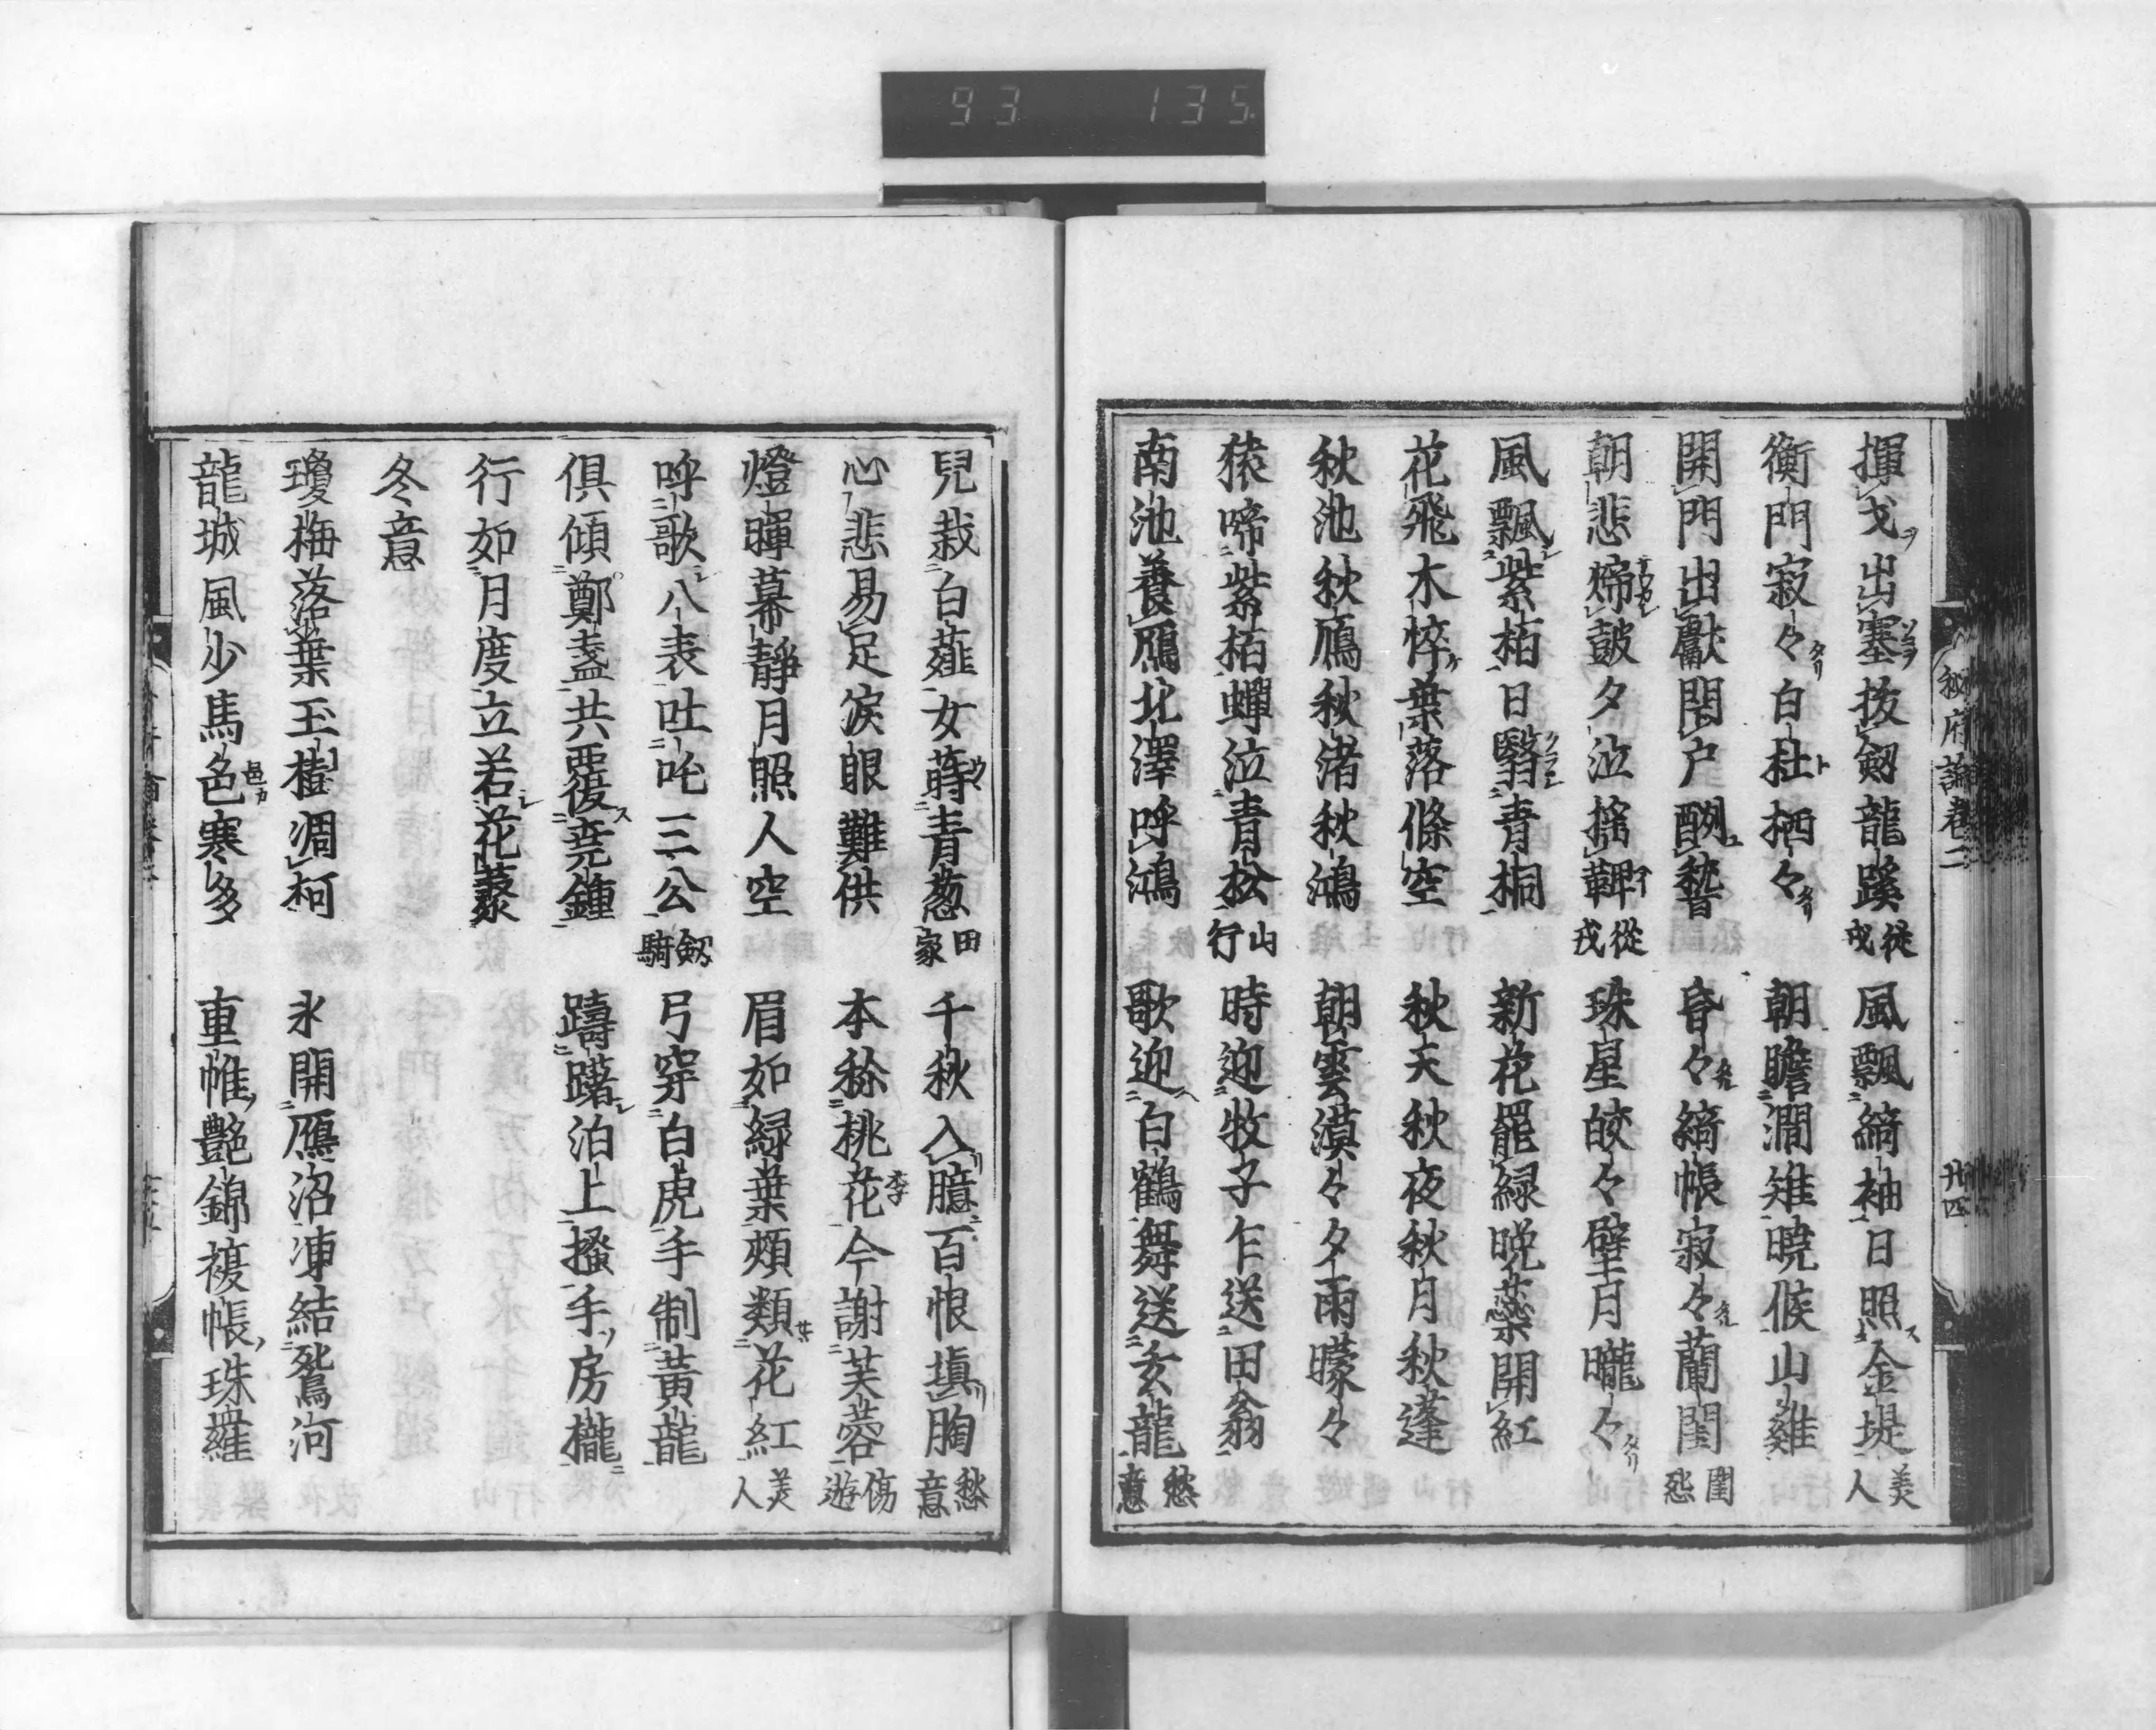 93 135
秘府論卷二
廿四
揮戈出塞拔劔龍蹊 從戎 風飄綺袖日照金堤 美人
衡門寂々白杜栖々 朝瞻澗雉曉候山雞
開門出獸閇戸酬嵆 昏々綺帳寂々蘭閨 閨怨
朝悲㗣皷夕泣搖鞞 從戎 珠星皎々璧月曨々
風飄紫柏日翳青桐 新花罷緑晩蘂開紅
花飛木悴葉落條空 秋天秋夜秋月秋蓬
秋池秋鴈秋渚秋鴻 朝雲漠々夕雨曚々
猿啼紫栢蟬泣青松 山行 時迎牧子乍送田翁
南池養鴈北澤呼鴻 歌迎白鶴舞送玄龍 愁意
兒栽白薤女蒔青葱 田家 千秋入臆百恨塡胸 愁意
心悲易足淚眼難供 本稌桃花今謝芙蓉 傷遊
燈暉幕靜月照人空 眉如緑葉頰類花紅 美人
呼歌八表吐吒三公 劔騎 弓穿白虎手制黃龍
俱傾鄭盞共覆堯鍾 躊躇泊上搔手房櫳
行如月度立若花叢
冬意
瓊梅落葉玉樹凋柯 氷開鴈沼凍結鴛河
龍城風少馬色寒多 重帷艷錦複帳珠羅